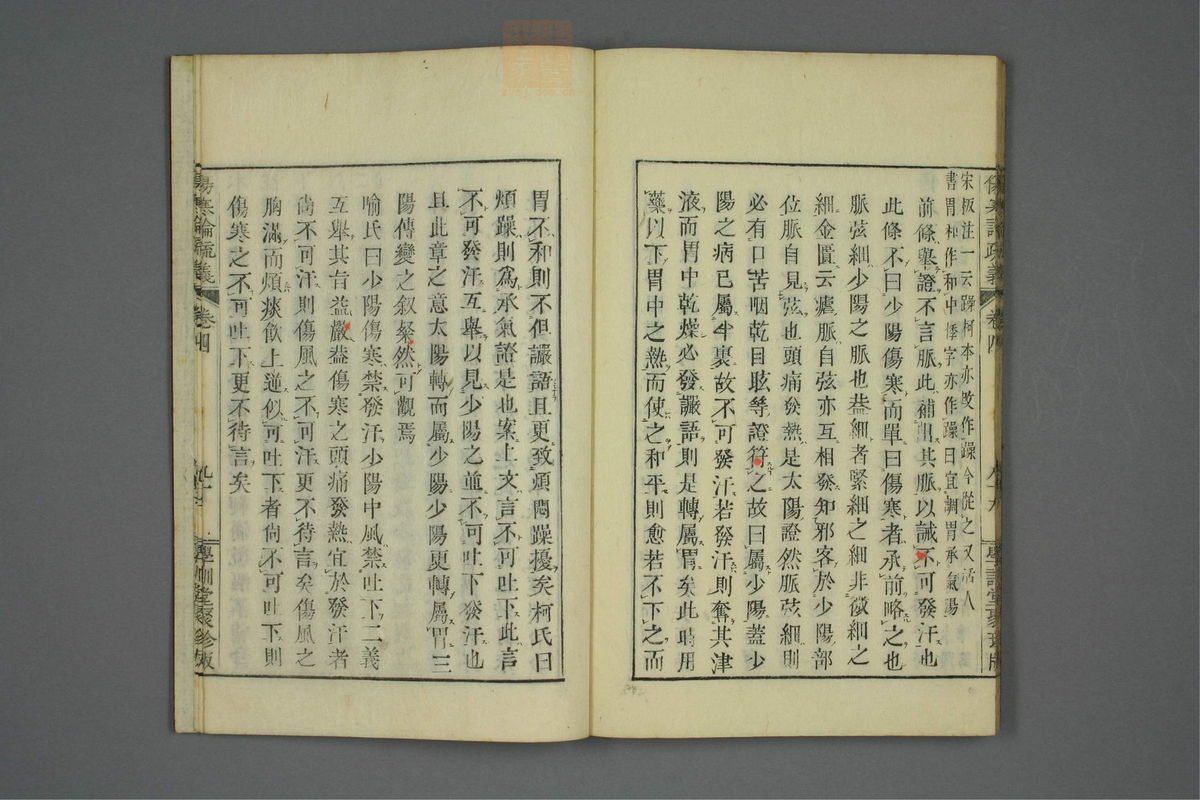 宋板注一云躁柯本亦攷作躁今從之又活人
書胃和作和中悸字亦作躁曰宜調胃承氣湯
前條舉證不言脈此補出其脈以誡不可發汗也
此條不曰少陽傷寒而單曰傷寒者承前略之也
脈弦細少陽之脈也葢細者緊細之細非微細之
細金匱云瘧脈自弦亦互相發知邪客於少陽部
位脈自見弦也頭痛發熱是太陽證然脈弦細則
必有口苦咽乾目眩等證符之故曰屬少陽蓋少
陽之病已屬半裏故不可發汗若發汗則奪其津
液而胃中乾燥必發讝語則是轉屬胃矣此時用
藥以下胃中之熱而使之和平則愈若不下之而
傷寒論疏義
卷四
胃不和則不但讝語且更致煩悶躁擾矣柯氏曰
煩躁則爲承氣證是也案上文言不可吐下此言
不可發汗互舉以見少陽之並不可吐下發汗也
且此章之意太陽轉而屬少陽少陽更轉屬胃三
陽傳變之叙粲然可觀焉
喻氏曰少陽傷寒禁發汗少陽中風禁吐下二義
互舉其旨益嚴葢傷寒之頭痛發熱宜於發汗者
尙不可汗則傷風之不可汗更不待言矣傷風之
胸滿而煩痰飲上逆似可吐下者尙不可吐下則
傷寒之不可吐下更不待言矣
傷寒論疏義
卷四
學訓堂聚珍版